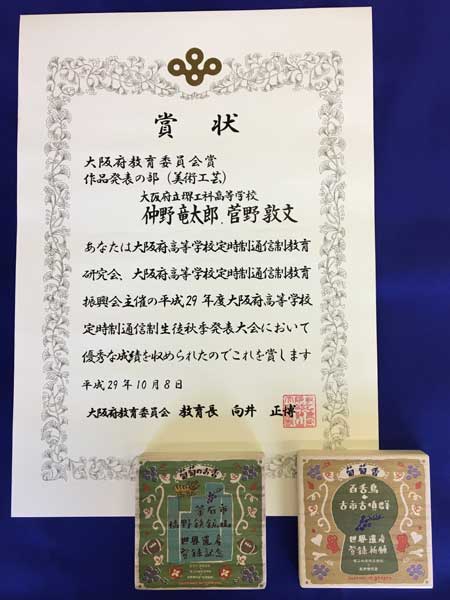 賞状
大阪府教育委員会賞
作品発表の部（美術工芸）
大阪府立堺工科高等学校
仲野竜太郎、菅野敦文
あなたは大阪府高等学校定時制通信制教育
研究会、大阪府高等学校定時制通信制教育
振興会主催の平成29年度大阪府高等学校
定時制通信制生徒秋季発表大会において
優秀な成績を収められたのでこれを賞します
平成29年10月8日
大阪府教育委員会 教育長 向井 正博
葡萄のお香
釜石市
橋野鉄鉱山
世界遺産
登録記念
葡萄香
百舌鳥
古市古墳群
世界遺産
登録祈願